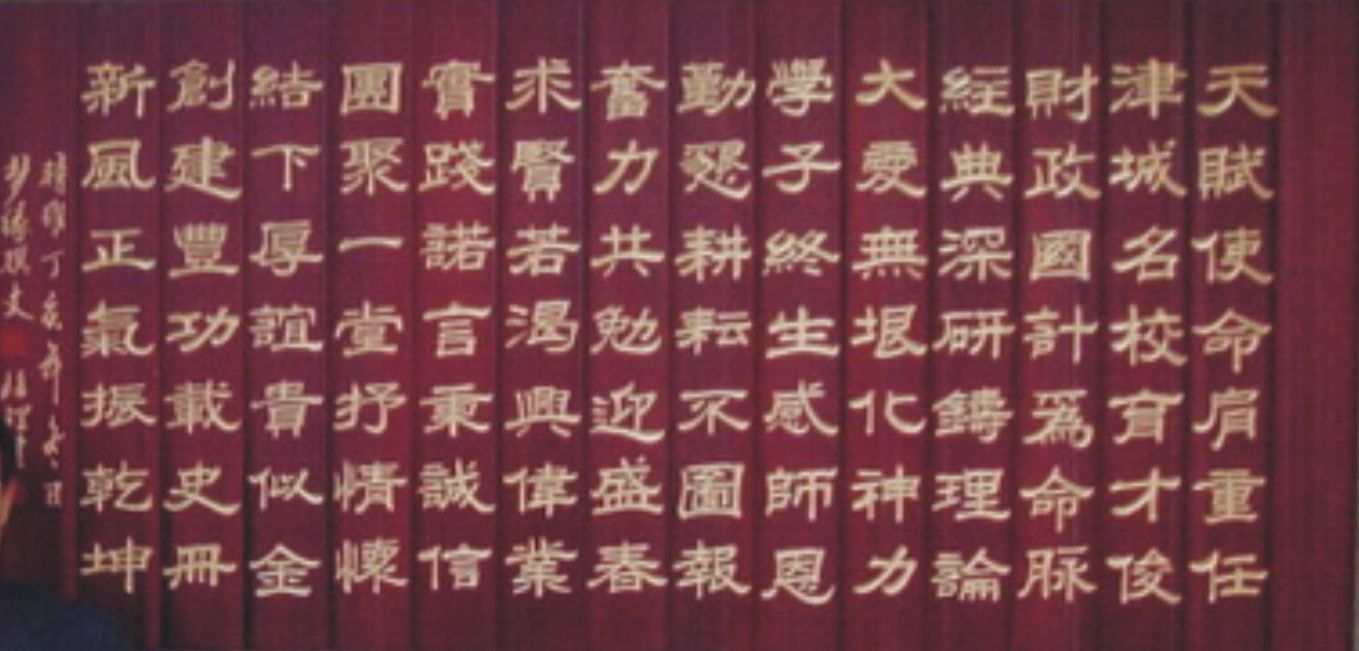 天賦使命肩重任
津城名校育才俊
財政國計為命脈
經典深研鑄理論
大愛無垠化神力
學子終生感師恩
勤懇耕耘不圖報
奮力共勉迎盛春
求賢若渴興偉業
實踐諾言秉誠信
團聚一堂抒情懷
結下厚誼貴似金
創建豐功載史冊
新風正氣振乾坤
丁亥年冬日